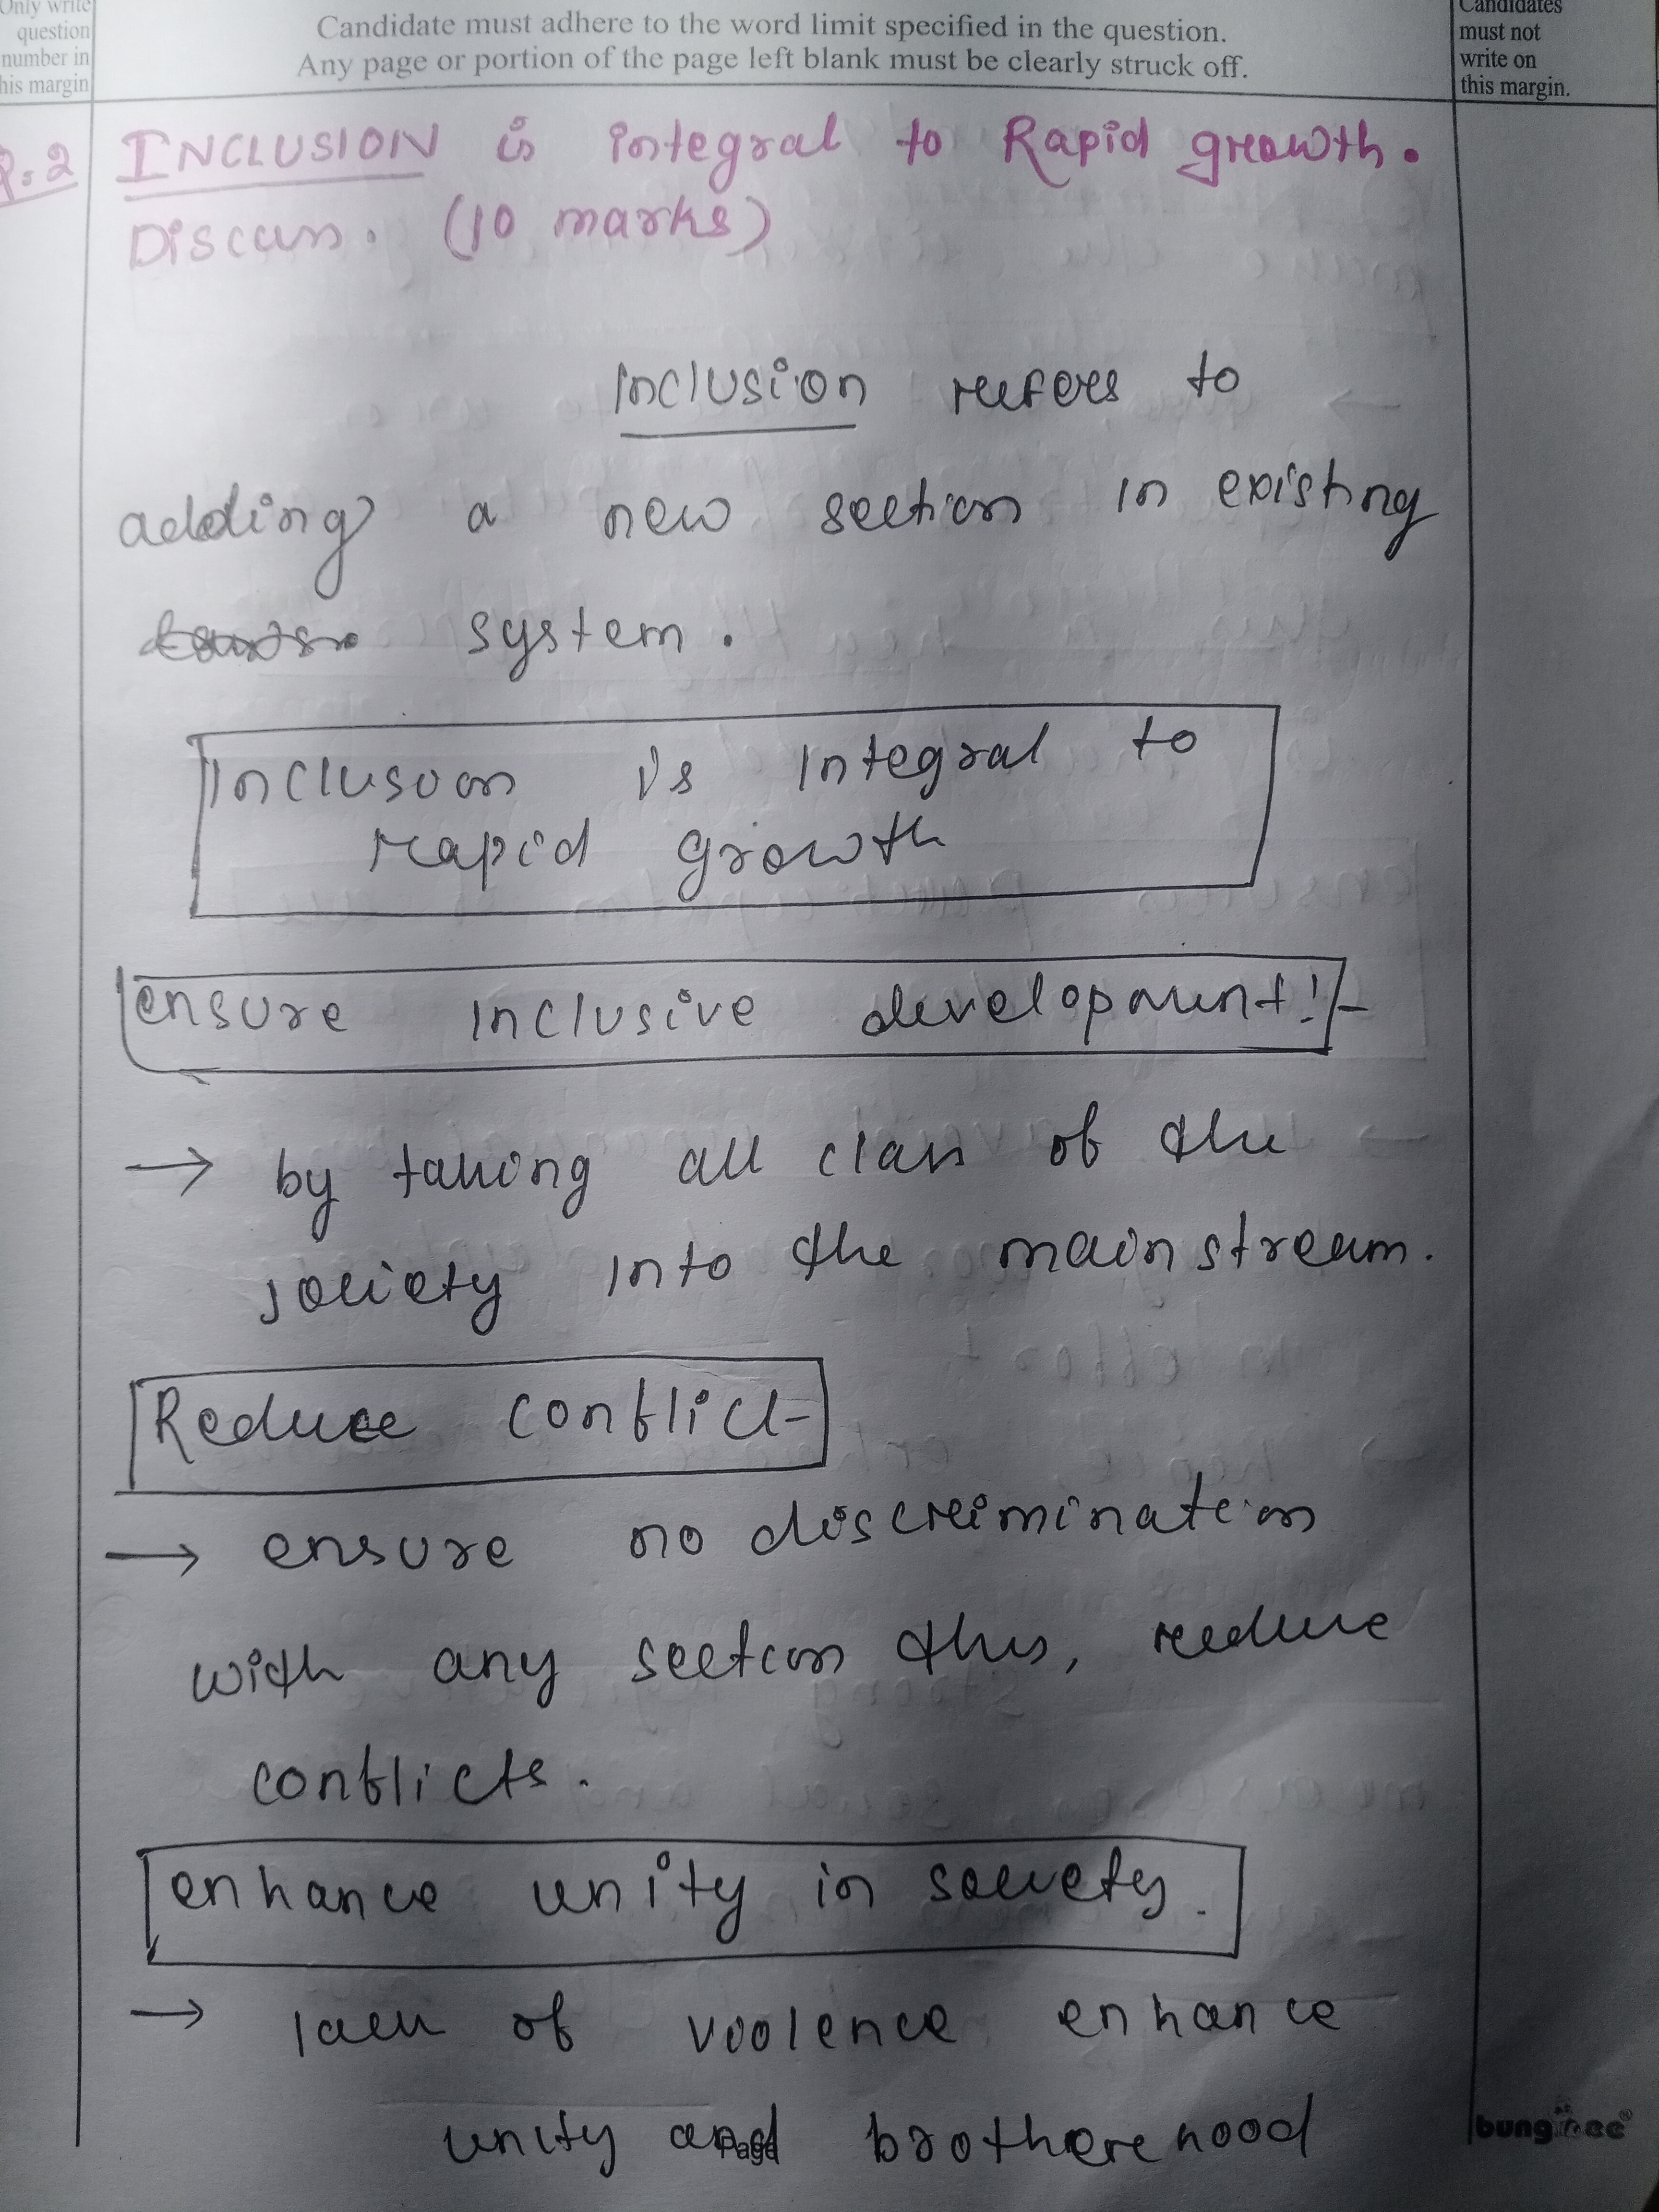 Only write
question
number in
this margin
Candidate must adhere to the word limit specified in the question.
Any page or portion of the page left blank must be clearly struck off.
Candidates
must not
write on
this margin.
Q.2 INCLUSION is integral to Rapid growth.
Discuss. (10 marks)
Inclusion refers to
adding a new section in existing
system.
Inclusion is integral to
rapid growth
ensure inclusive development!-
→ by taking all class of the
society into the mainstream.
Reduce conflict-
→ ensure no discrimination
with any section thus, reduce
conflicts.
enhance unity in society.
→ lack of violence enhance
unity and brotherhood
Page
bungbee